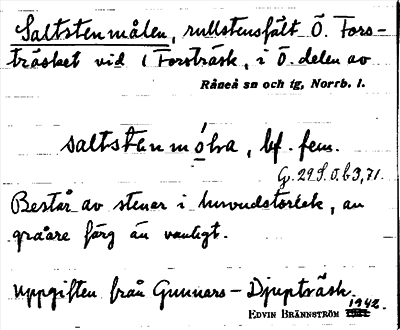 Saltstenmålen, rullstensfält Ö. Fors-
träsket vid 1 Forsträsk, i Ö. delen av
Råneå sn och tg, Norrb. l.
saltstenmólna, bf. fem.
Består av stenar i huvudstorlek, au
gråare färg än vanligt.
Uppgiften från Gunnars-Djupträsk.
Edvin Brännström 1942.